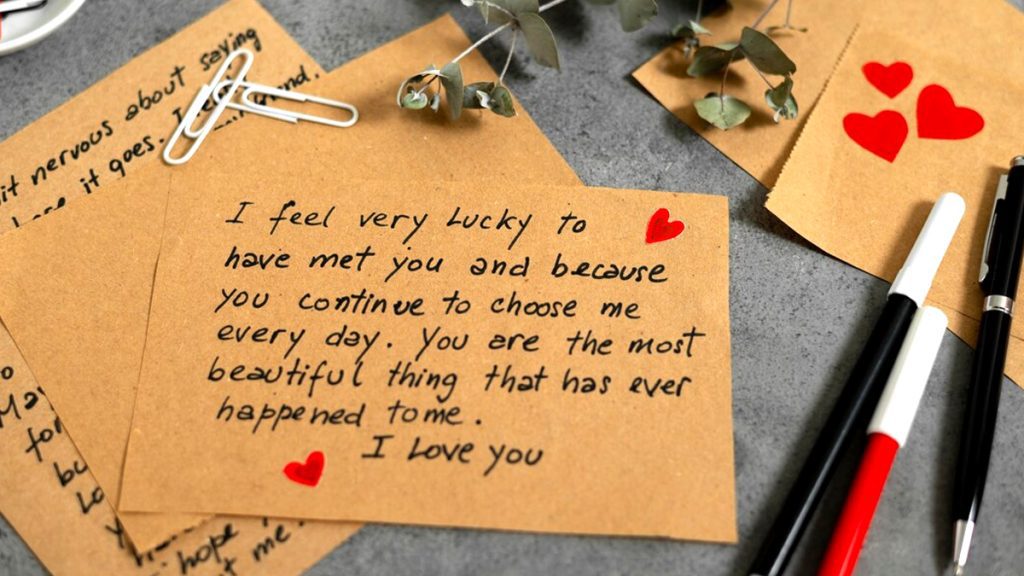 it nervous about saying
it goes. I
I feel very lucky to
have met you and because
you continue to choose me
every day. You are the most
beautiful thing that has ever
happened to me.
I Love you
Ma
for
hope
me.